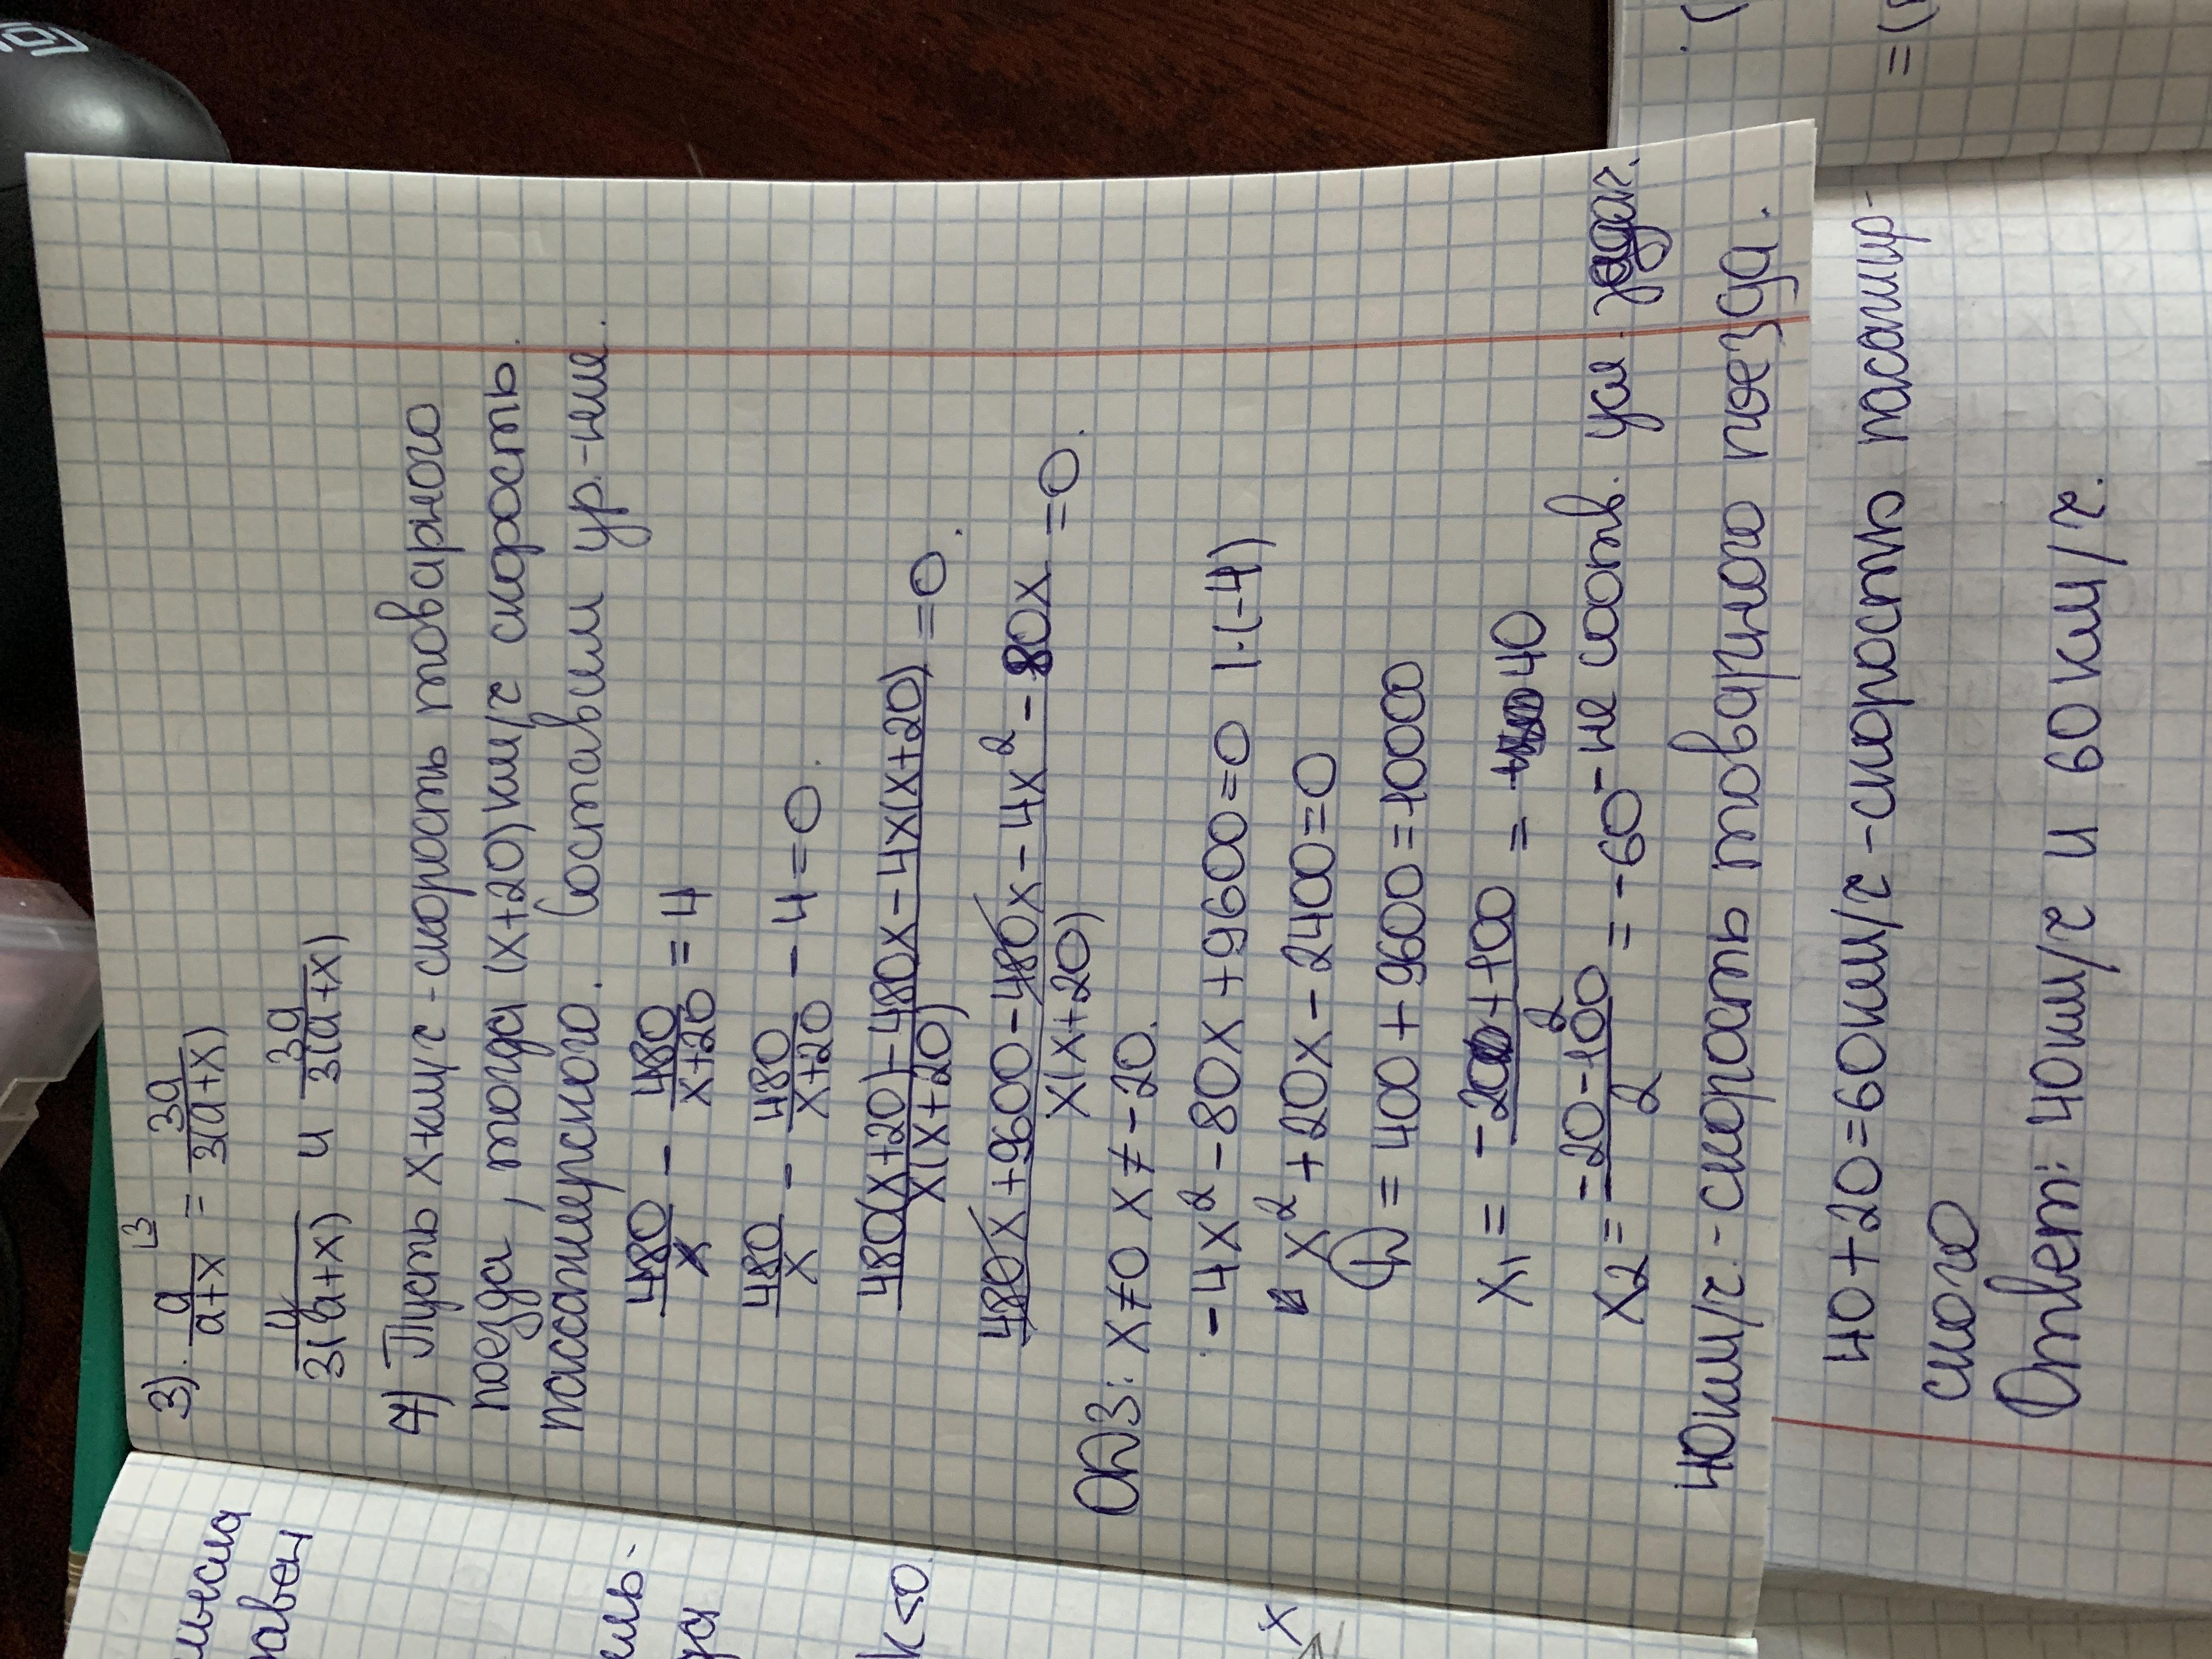 3). a/(a+x) ⌊3 = 3a/(3(a+x))
4/(3(a+x)) и 3a/(3(a+x))
7) Пусть х км/ч - скорость товарного
поезда, тогда (х+20) км/ч скорость
пассажирского. Составим ур.-ние.
480/x - 480/(x+20) = 4
480/x - 480/(x+20) - 4 = 0.
(480(x+20) - 480x - 4x(x+20))/(x(x+20)) = 0.
(480x + 9600 - 480x - 4x² - 80x)/(x(x+20)) = 0.
ОДЗ: x≠0 x≠-20.
-4x² - 80x + 9600 = 0 |·(-4)
x² + 20x - 2400 = 0
D = 400 + 9600 = 10000
x1 = (-20 + 100)/2 = 40
x2 = (-20 - 100)/2 = -60 - не соотв. усл. задач.
40 км/ч. - скорость товарного поезда.
40 + 20 = 60 км/ч - скорость пасажир-
ского
Ответ: 40 км/ч и 60 км/ч.
авен
ель-
k<0.
x